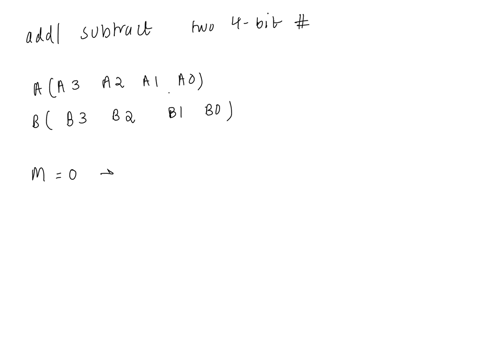 add/ subtract two 4-bit #
A(A3 A2 A1 A0)
B( B3 B2 B1 B0)
M = 0 →